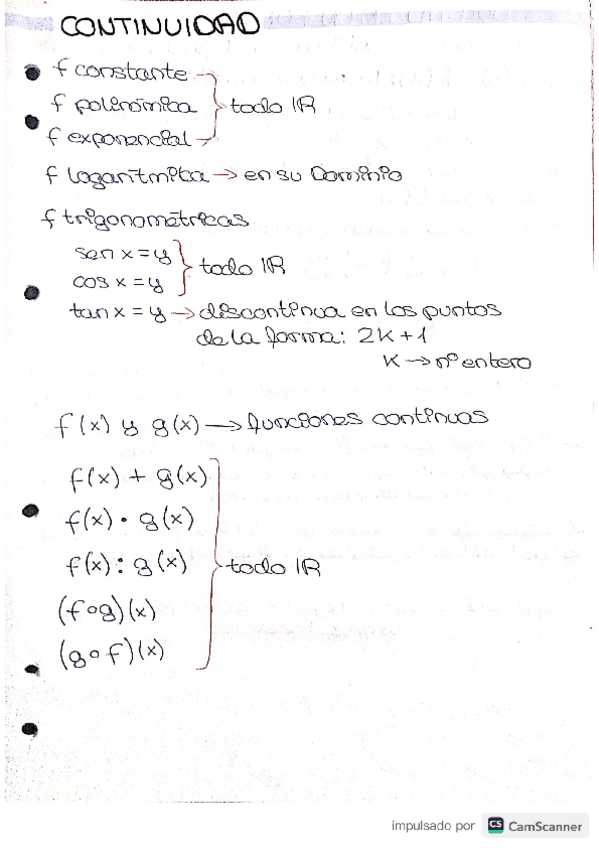 CONTINUIDAD
f constante
f polinómica } todo IR
f exponencial
f logarítmica → en su Dominio
f trigonométricas
sen x = y } todo IR
cos x = y
tan x = y → discontinua en los puntos
de la forma: 2K + 1
K → nº entero
f(x) y g(x) → funciones continuas
f(x) + g(x)
f(x) · g(x)
f(x) : g(x) } todo IR
(f∘g)(x)
(g∘f)(x)
impulsado por CS CamScanner